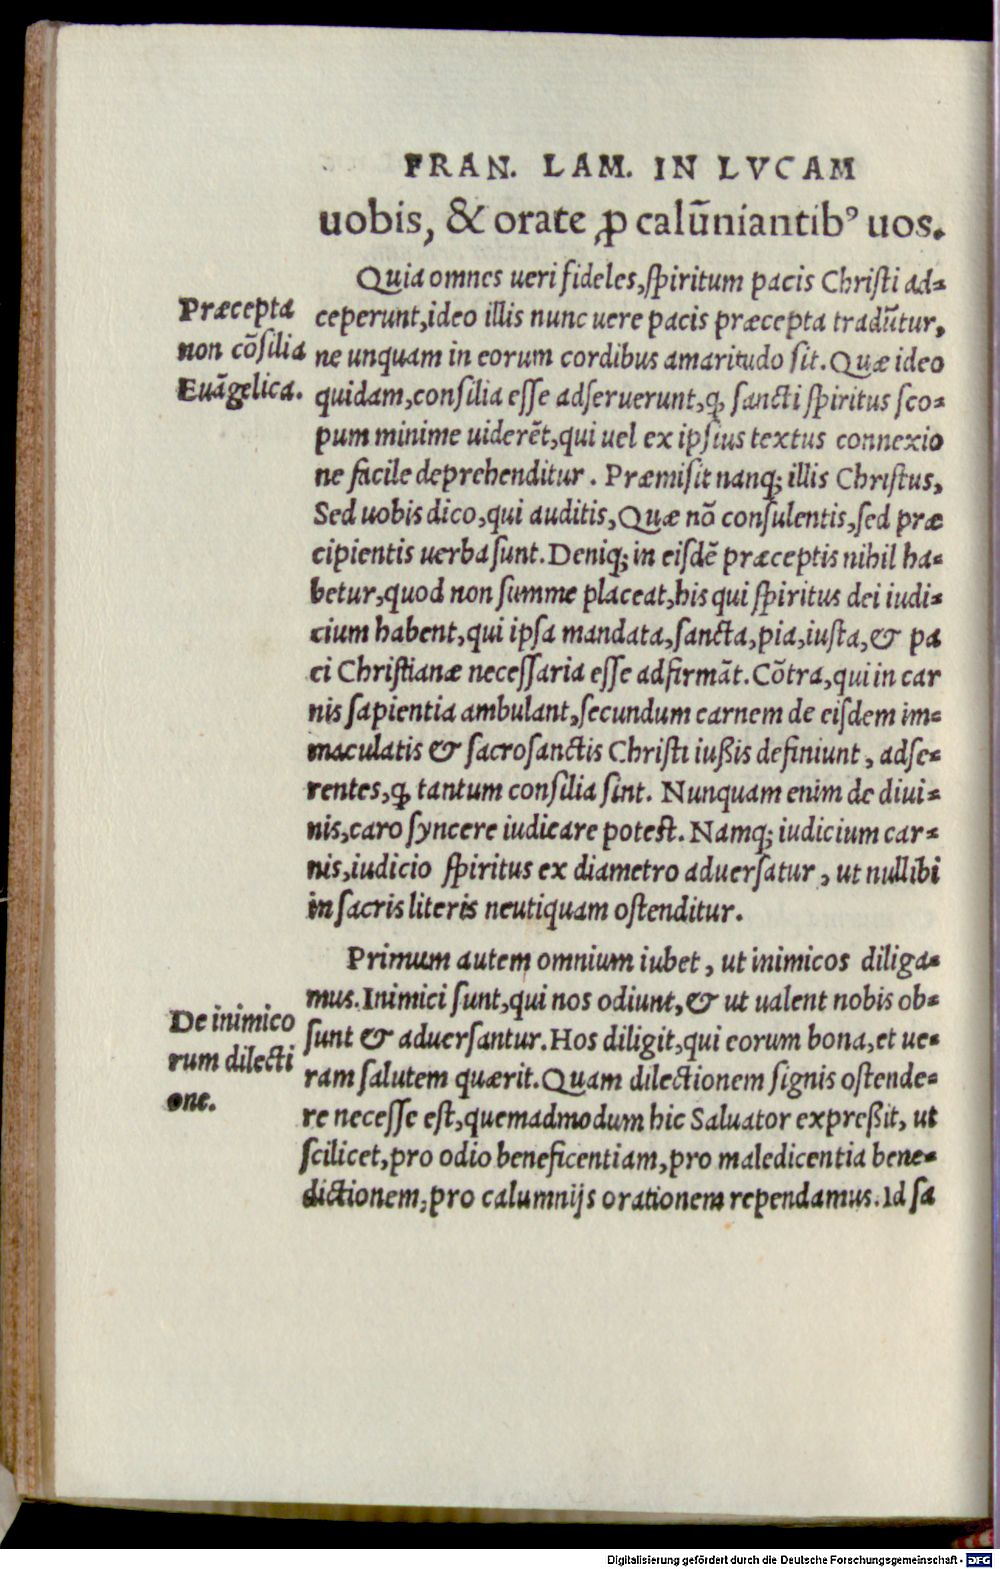 FRAN. LAM. IN LVCAM
uobis, & orate ꝓ calũniantibꝰ uos.
Præcepta
non cõsilia
Euãgelica.
Quia omnes ueri fideles, spiritum pacis Christi ad-
ceperunt, ideo illis nunc uere pacis præcepta tradũtur,
ne unquam in eorum cordibus amaritudo sit. Quæ ideo
quidam, consilia esse adseruerunt, ꝙ sancti spiritus sco-
pum minime uiderẽt, qui uel ex ipsius textus connexio
ne facile deprehenditur. Præmisit nanq; illis Christus,
Sed uobis dico, qui auditis, Quæ nõ consulentis, sed præ
cipientis uerba sunt. Deniq; in eisdẽ præceptis nihil ha-
betur, quod non summe placeat, his qui spiritus dei iudi-
cium habent, qui ipsa mandata, sancta, pia, iusta, & pa
ci Christianæ necessaria esse adfirmãt. Cõtra, qui in car
nis sapientia ambulant, secundum carnem de eisdem im-
maculatis & sacrosanctis Christi iußis definiunt, adse-
rentes, ꝙ tantum consilia sint. Nunquam enim de diui-
nis, caro syncere iudicare potest. Namq; iudicium car-
nis, iudicio spiritus ex diametro aduersatur, ut nullibi
in sacris literis neutiquam ostenditur.
De inimico
rum dilecti
one.
Primum autem omnium iubet, ut inimicos diliga-
mus. Inimici sunt, qui nos odiunt, & ut ualent nobis ob-
sunt & aduersantur. Hos diligit, qui eorum bona, et ue-
ram salutem quærit. Quam dilectionem signis ostende-
re necesse est, quemadmodum hic Saluator expreßit, ut
scilicet, pro odio beneficentiam, pro maledicentia bene-
dictionem, pro calumnijs orationem rependamus. Id sa
Digitalisierung gefördert durch die Deutsche Forschungsgemeinschaft - DFG